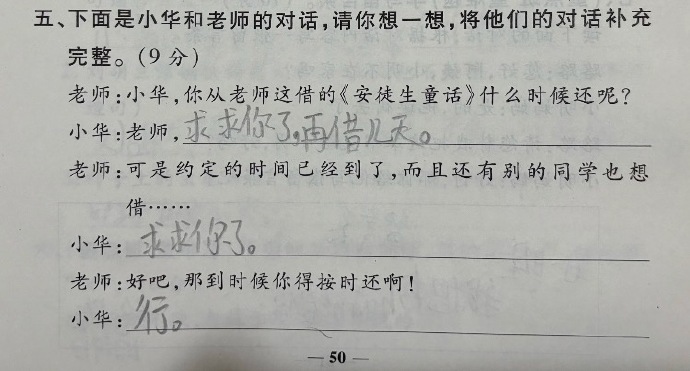 五、下面是小华和老师的对话,请你想一想,将他们的对话补充
完整。(9分)
老师:小华,你从老师这借的《安徒生童话》什么时候还呢?
小华:老师,求求你了,再借几天。
老师:可是约定的时间已经到了,而且还有别的同学也想
借……
小华:求求你了。
老师:好吧,那到时候你得按时还啊!
小华:行。
— 50 —